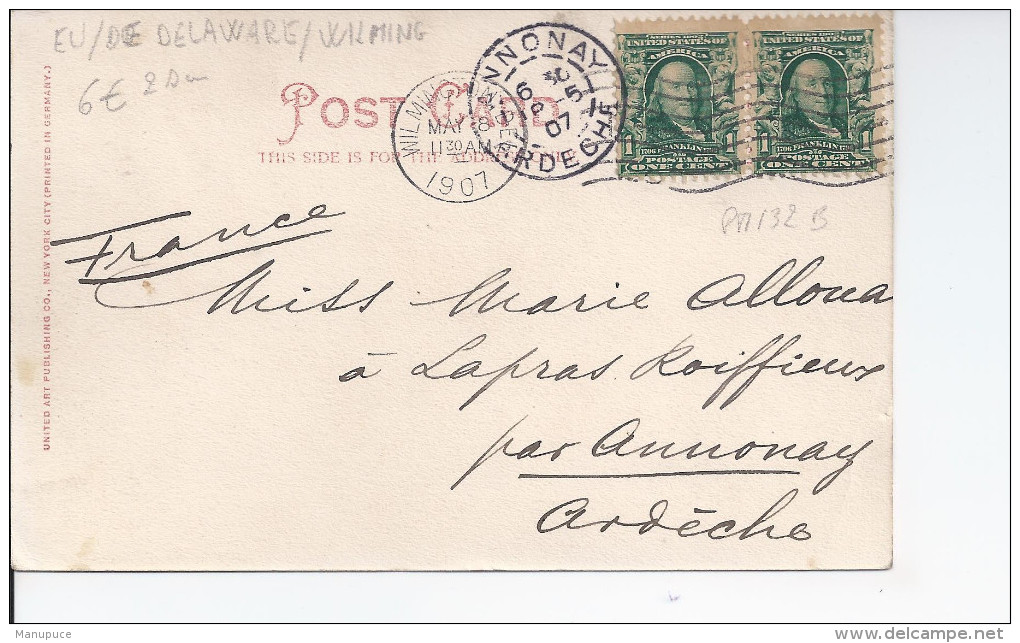 EU/DE DELAWARE/WILMING
6€
POST CARD
THIS SIDE IS FOR THE
WILMINGTON DEL
MAY 8
11 30 AM
1907
ANNONAY
6
30
5
07
ARDECHE
SERIES 1902
UNITED STATES OF
AMERICA
1706 FRANKLIN 1790
1 POSTAGE 1
ONE CENT
SERIES 1902
UNITED STATES OF
AMERICA
1706 FRANKLIN 1790
1 POSTAGE 1
ONE CENT
France
Miss Marie Alloua
à Lapras Roiffieux
par Annonay
Ardèche
UNITED ART PUBLISHING CO., NEW YORK CITY (PRINTED IN GERMANY.)
Manupuce
delcampe.net